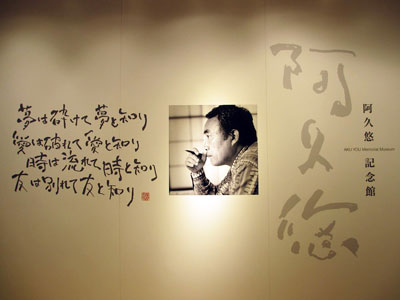 夢は砕けて夢と知り
愛は破れて愛と知り
時は流れて時と知り
友は別れて友と知り
阿久悠
阿久悠 記念館
AKU YOU Memorial Museum